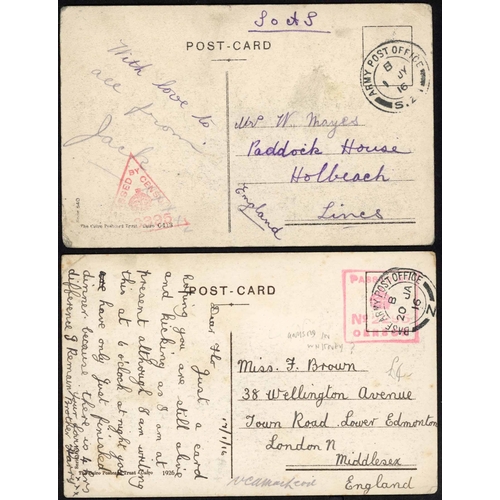 S o A S
POST-CARD
ARMY POST OFFICE
B
1 JY
16
S.Z.
With love to
all from
Jack
PASSED BY CENSOR
Mr W. Mayes
Paddock House
Holbeach
Lines
England
The Cairo Postcard Trust, Cairo
POST-CARD
PASSED
No
CENSOR
BASE ARMY POST OFFICE
B
20 JA
16
Z
17/1/16
Dear Flo
Just a card
hoping you are still alive
and kicking as I am at
present although I am writing
this at 6 o'clock at night you
have only just finished
dinner because there is 4 hrs
difference
Your Loving
Brother Harry
x x x
Miss. F. Brown
38 Wellington Avenue
Town Road, Lower Edmonton
London N
Middlesex
England
£4
The Cairo Postcard Trust, Cairo